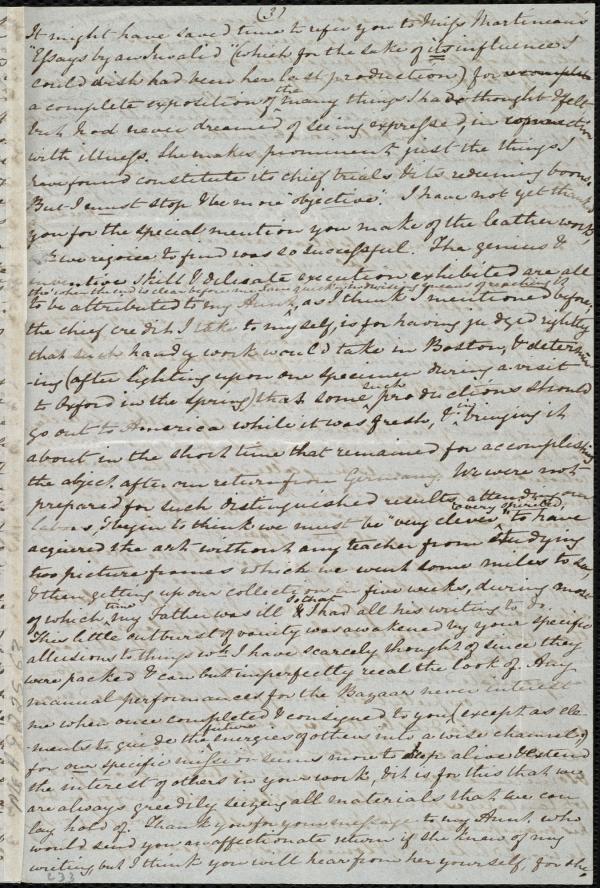 (3)
It might have saved time to refer you to Miss Martineau's
"Essays by an Invalid" (which for the sake of its influence I
could wish had been her last production) for
a complete exposition of the many things I had thought & felt
but had never dreamed of seeing expressed, in connection
with illness. She makes prominent just the things I
have found constitute its chief trials & its redeeming boons.
But I must stop & be more "objective". I have not yet thanked
you for the special mention you make of the leather work,
we rejoice to find was so successful. The genius &
inventive skill & delicate execution exhibited are all
to be attributed to my Aunt, as I think I mentioned before,
the chief credit I take to myself, is for having judged rightly
that such handy work would take in Boston, & determin-
ing (after lighting upon one specimen during a visit
to Oxford in the spring) that some such productions should
go out to America while it was fresh, & in bringing it
about in the short time that remained for accomplishing
the object, after our return from Germany. We were not
prepared for such distinguished results attending our
labors, & begin to think we must be "very clever, to have
acquired the art without any teacher from studying
two picture frames which we went some miles to see,
& then getting up our collection in five weeks, during most
of which time my Father was ill & so that I had all his writing to do.
This little outburst of vanity was awakened by your specific
allusions to things wh I have scarcely thought of since they
were packed & can but imperfectly recal the look of. Any
manual performances for the Bazaar never interest
me when once completed & consigned to you (except as ele-
ments to guide the future energies of others into a wise channel,)
for our specific mission seems more to keep alive & extend
the interest of others in your work, & it is for this that we
are always greedily seizing all materials that we can
lay hold of. Thank you for your message to my Aunt, who
would send you an affectionate return if she knew of my
writing, but I think you will hear from her yourself, for she